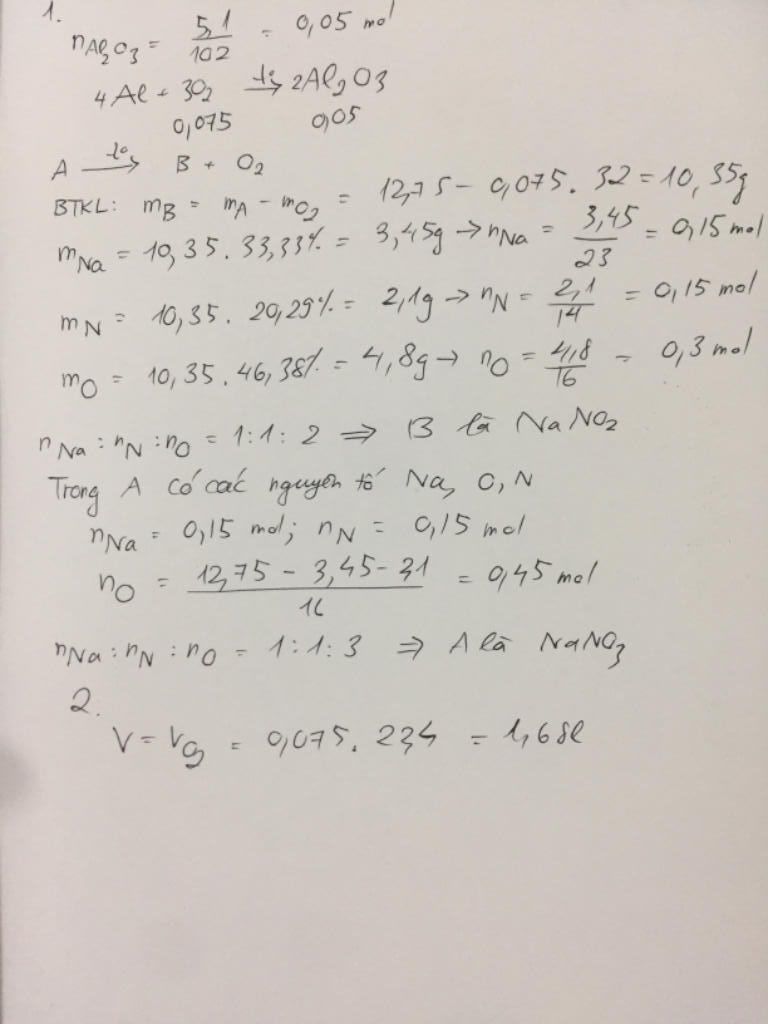 1.
nAl2O3 = 5,1/102 = 0,05 mol
4Al + 3O2 —to→ 2Al2O3
0,075 0,05
A —to→ B + O2
BTKL: mB = mA - mO2 = 12,75 - 0,075. 32 = 10,35g
mNa = 10,35. 33,33% = 3,45g → nNa = 3,45/23 = 0,15 mol
mN = 10,35. 20,29% = 2,1g → nN = 2,1/14 = 0,15 mol
mO = 10,35. 46,38% = 4,8g → nO = 4,8/16 = 0,3 mol
nNa : nN : nO = 1:1:2 ⇒ B là NaNO2
Trong A có các nguyên tố Na, O, N
nNa = 0,15 mol; nN = 0,15 mol
nO = (12,75 - 3,45 - 2,1)/16 = 0,45 mol
nNa : nN : nO = 1:1:3 ⇒ A là NaNO3
2.
V = VO2 = 0,075. 22,4 = 1,68l